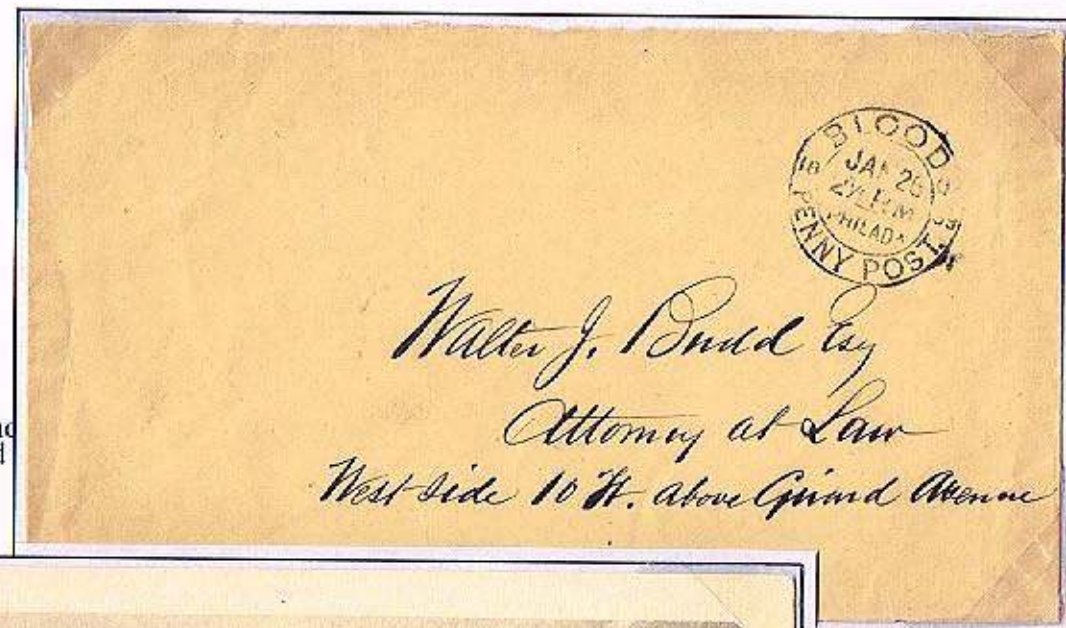 BLOOD'S
JAN 26
PHILADA
PENNY POST.
Walter J. Budd Esq
Attorney at Law
West side 10 St. above Girard Avenue